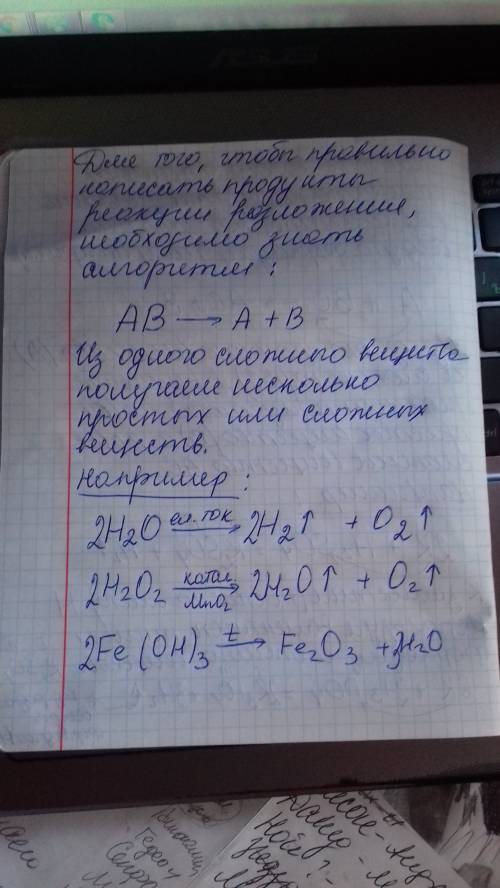 ASUS
Для того, чтобы правильно
написать продукты
реакции разложения,
необходимо знать
алгоритм :
AB → A + B
Из одного сложного вещества
получаем несколько
простых или сложных
веществ.
Например :
2H₂O эл. ток → 2H₂↑ + O₂↑
2H₂O₂ катал. MnO₂ → 2H₂O↑ + O₂↑
2Fe(OH)₃ t → Fe₂O₃ + 3H₂O